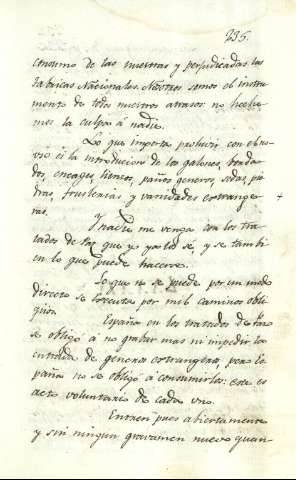 235.
consumo de las nuestras y perjudicadas las
fabricas Nacionales. Nosotros somos el instru-
mento de todos nuestros atrasos: no heche-
mos la culpa á nadie.
Lo que importa prohivir con el re-
vio es la introducion de los galones, borda-
dos, encages, lienzos, paños, generos, sedas, pie-
dras, fruslerias y vanidades estrange-
ras.
Y nadie me venga con los tra-
tados de Paz que yo ya los sé, y se tambi-
en lo que puede hacerse.
Lo que no se puede por un modo
directo se egecuta por mil caminos obli-
quos.
España en los tratados de Paz
se obligó á no grabar mas ni impedir la
entrada de generos estrangeros, pero Es-
paña no se obligó á consumirlos: este es
acto voluntario de cada uno.
Entren pues abiertamente
y sin ningun gravamen nuevo quan-